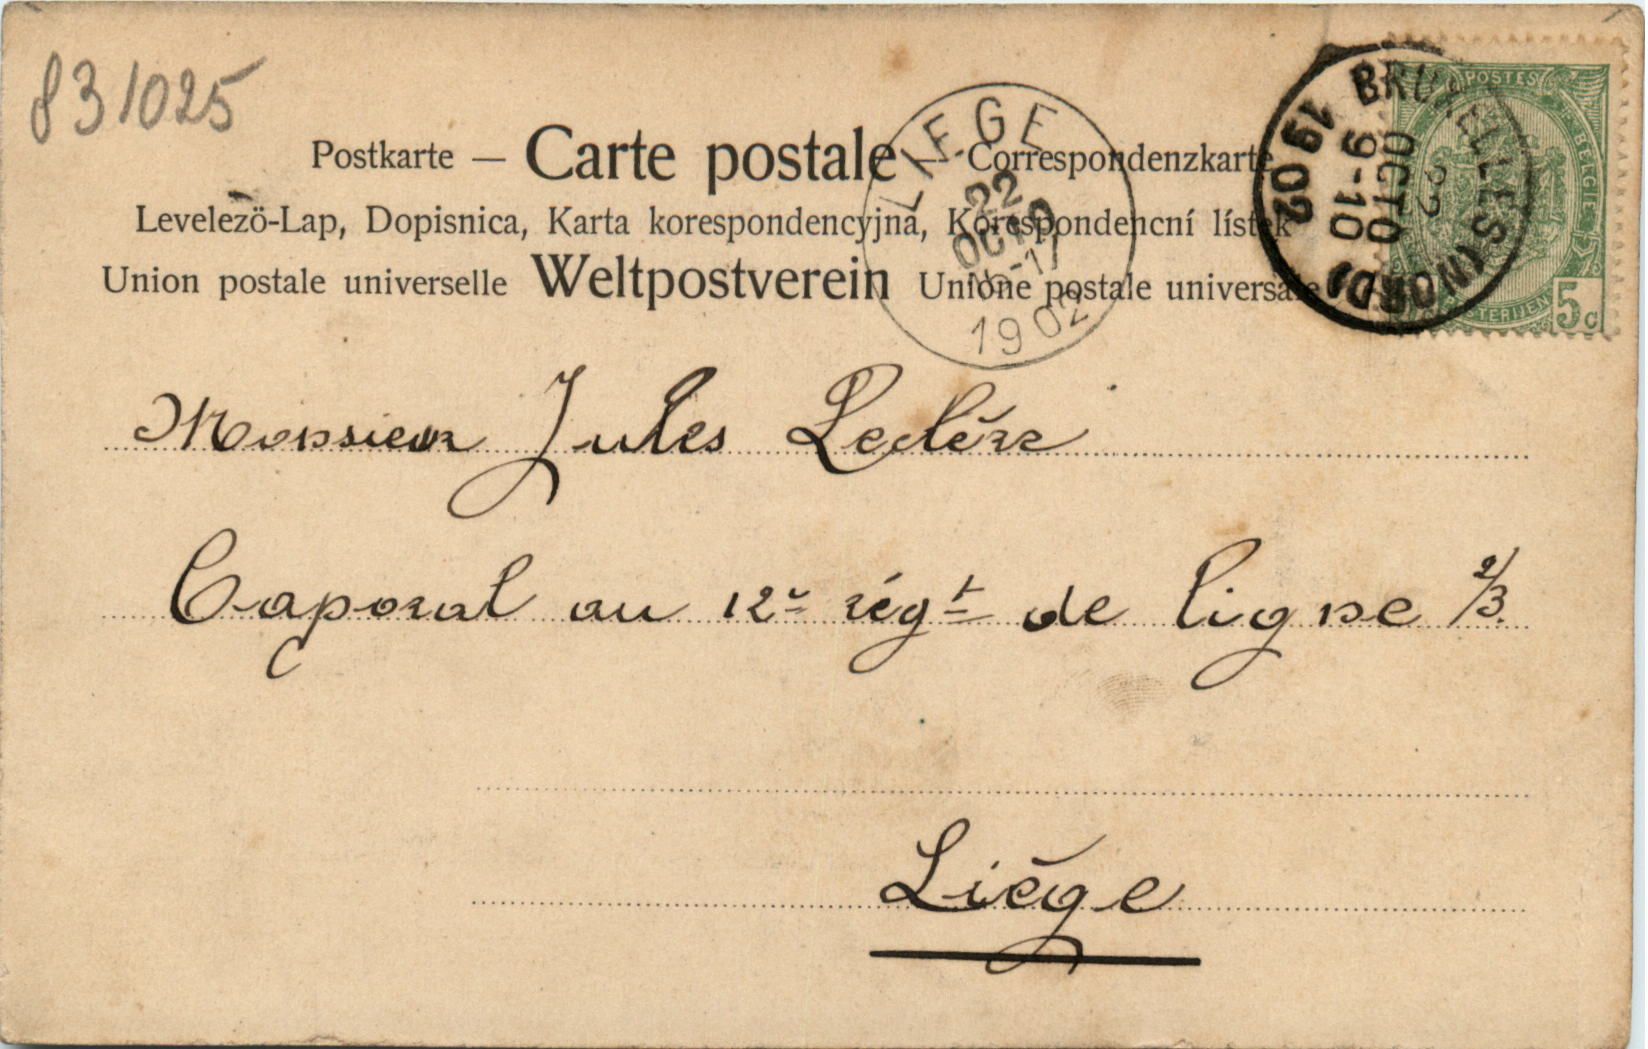 831025
Postkarte — Carte postale — Correspondenzkarte
Levelező-Lap, Dopisnica, Karta korespondencyjna, Korespondencní lístek
Union postale universelle Weltpostverein Unione postale universale
LIEGE
22
OCTO
16-17
1902
BRUXELLES (NORD)
22
OCTO
9-10
1902
POSTES
BELGIE
5c
Monsieur Jules Leclérc
Caporal au 12e régt de ligne 2/3.
Liège